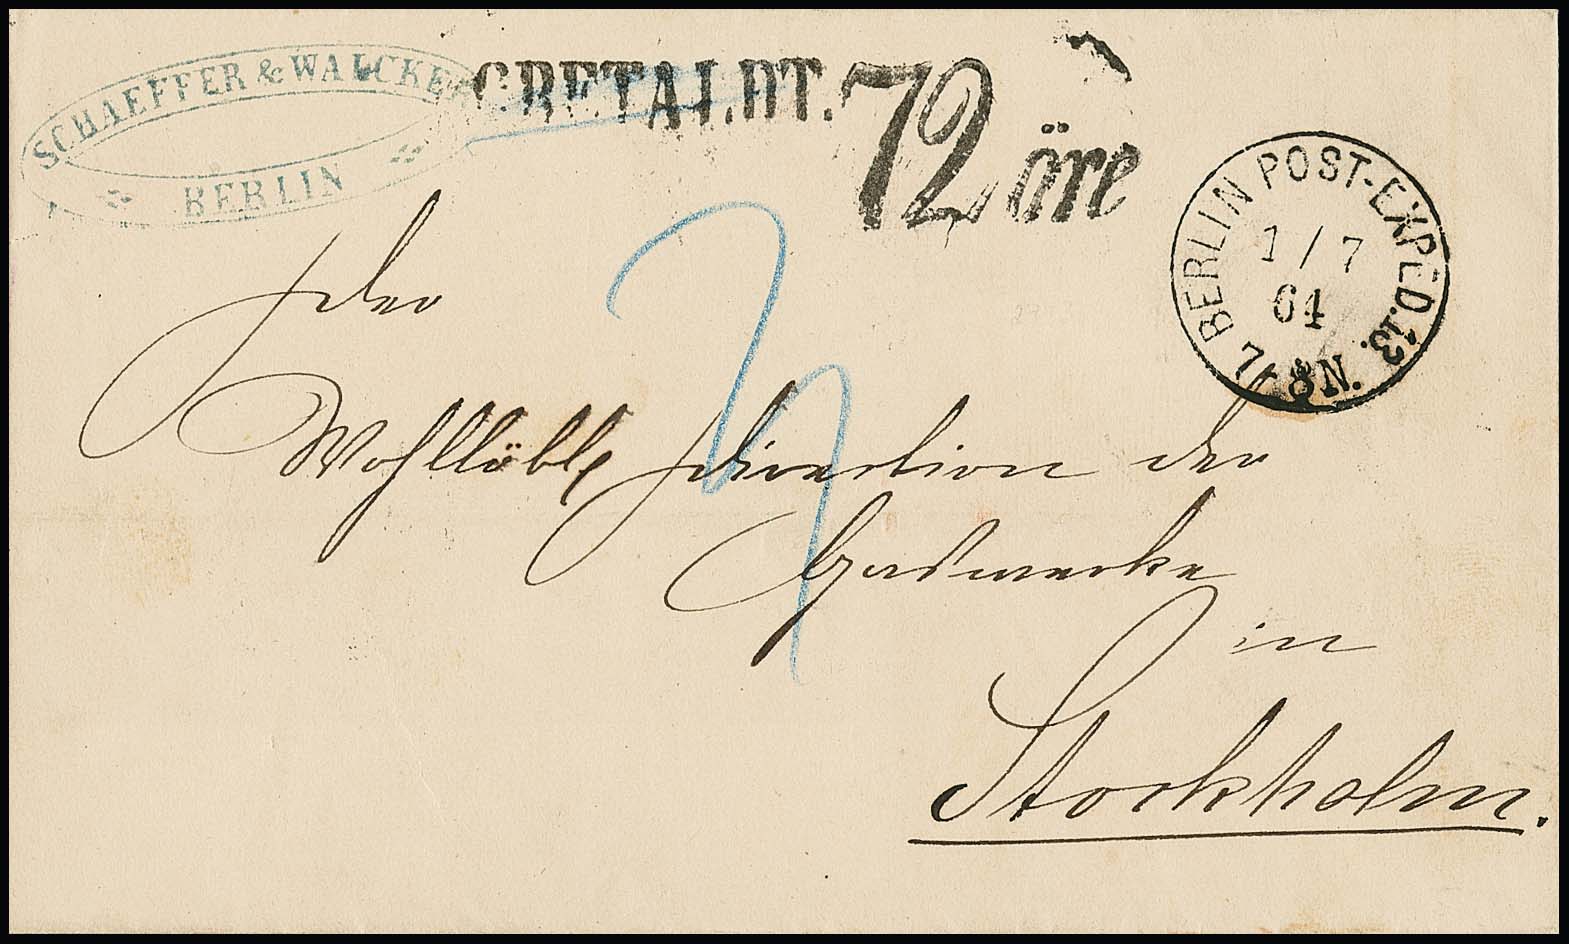 SCHAEFFER & WALCKER
BERLIN
OBETALDT.
72 öre
BERLIN POST-EXPED. 13.
1/7
64
7-8 N.
Der
Wohllöbl. Direction der
Gaswerke
in
Stockholm.